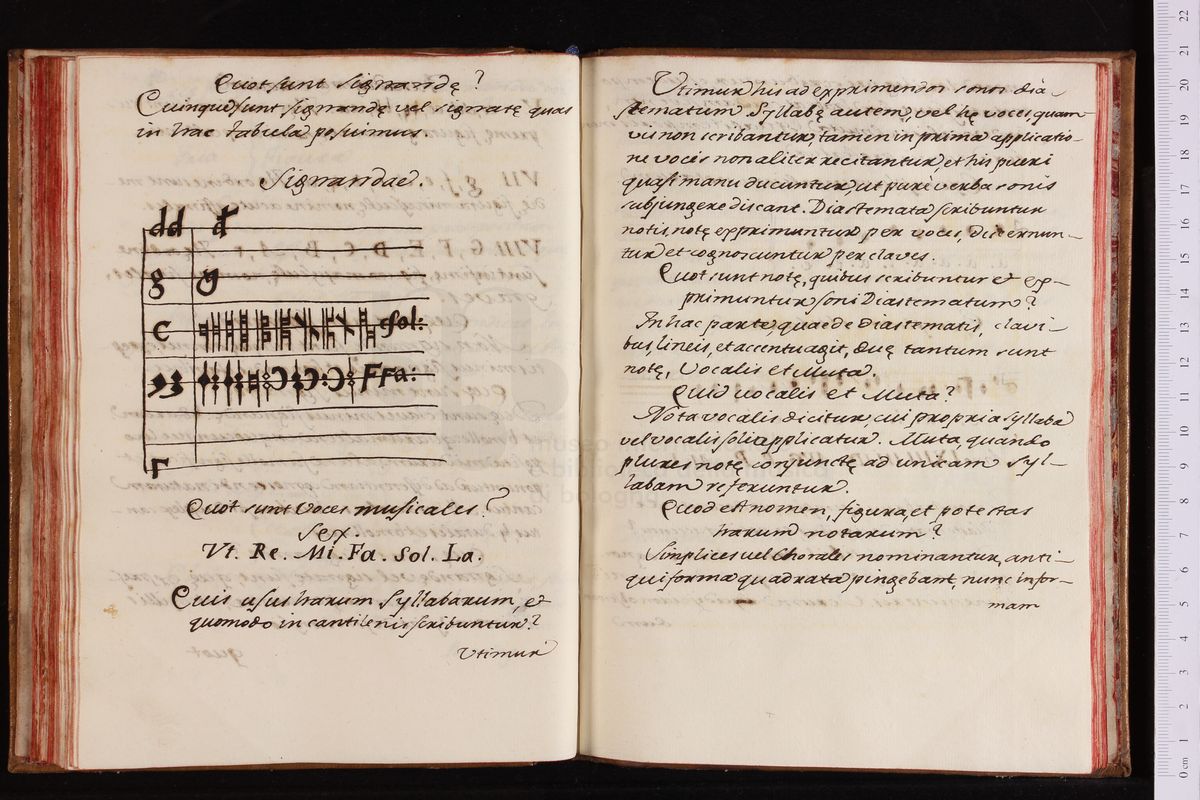 Quot sunt signandę?
Quinque sunt signandę vel signatę quas
in hac tabula posuimus.
Signandae.
dd d
g g
C Sol:
FFa:
Γ
Quot sunt Voces musicales?
Sex.
Vt. Re. Mi. Fa. Sol. La.
Quis usus harum Syllabarum, et
quomodo in cantilenis scribuntur?
Vtimur
Vtimur his ad exprimendos sonos dia-
stematum. Syllabę autem, vel hę voces, quam
vis non scribantur, tamen in prima applicatio-
ne vocis non aliter recitantur, et his pueri
quasi manu ducuntur, ut pure verba sonis
subjungere discant. Diastemata scribuntur
notis, notę exprimuntur per voces, discernun-
tur et cognoscuntur per claves.
Quot sunt notę, quibus scribuntur et ex-
primuntur soni Diastematum?
In hac parte, quae de Diastematis, clavi-
bus, lineis, et accentu agit, duę tantum sunt
notę, Vocalis et Muta.
Quid vocalis et Muta?
Nota vocalis dicitur, cui propria syllaba
vel vocalis soli applicatur. Muta, quando
plures notę conjunctę ad unicam Syl-
labam referuntur.
Quod est nomen, figura, et potestas
harum notarum?
Simplices vel Chorales nominantur, anti-
qui forma quadrata pingebant, nunc infor-
mam